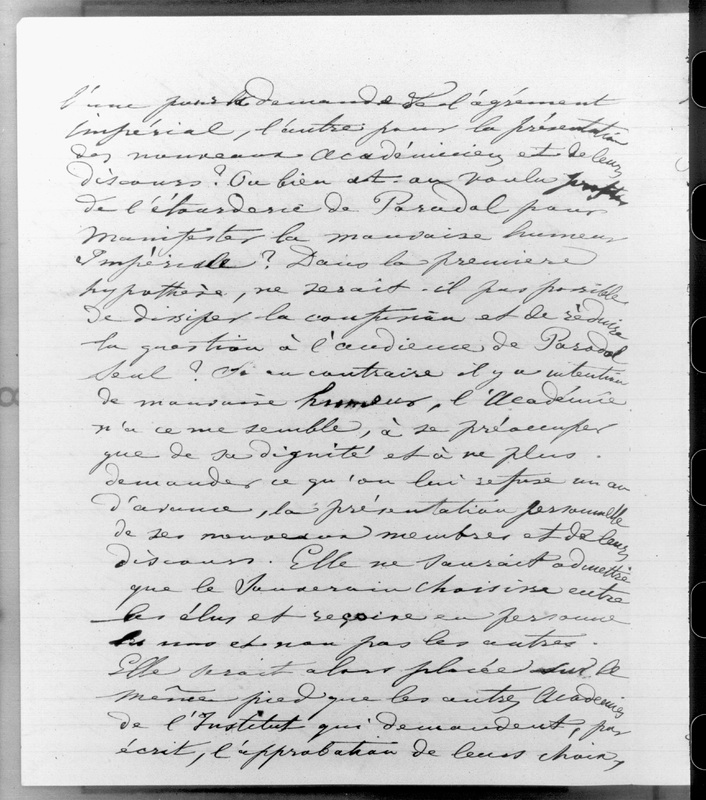 l'une pour la demande de l'agrément
impérial, l'autre pour la présentation
des nouveaux académiciens et de leurs
discours? Ou bien a-t-on voulu profiter
de l'étourderie de Paradol pour
manifester la mauvaise humeur
Impériale? Dans la première
hypothèse, ne serait-il pas possible
de dissiper la confusion et de réduire
la question à l'audience de Paradol
seul? Si au contraire il y a intention
de mauvaise humeur, l'Académie
n'a ce me semble, à se préoccuper
que de sa dignité et à ne plus
demander ce qu'on lui refuse un an
d'avance, la présentation personnelle
de ses nouveaux membres et de leurs
discours. Elle ne saurait admettre
que le Souverain choisisse entre
les élus et reçoive en personne
les uns et non pas les autres.
Elle serait alors placée sur le
même pied que les autres Académies
de l'Institut qui demandent, par
écrit, l'approbation de leurs choix,